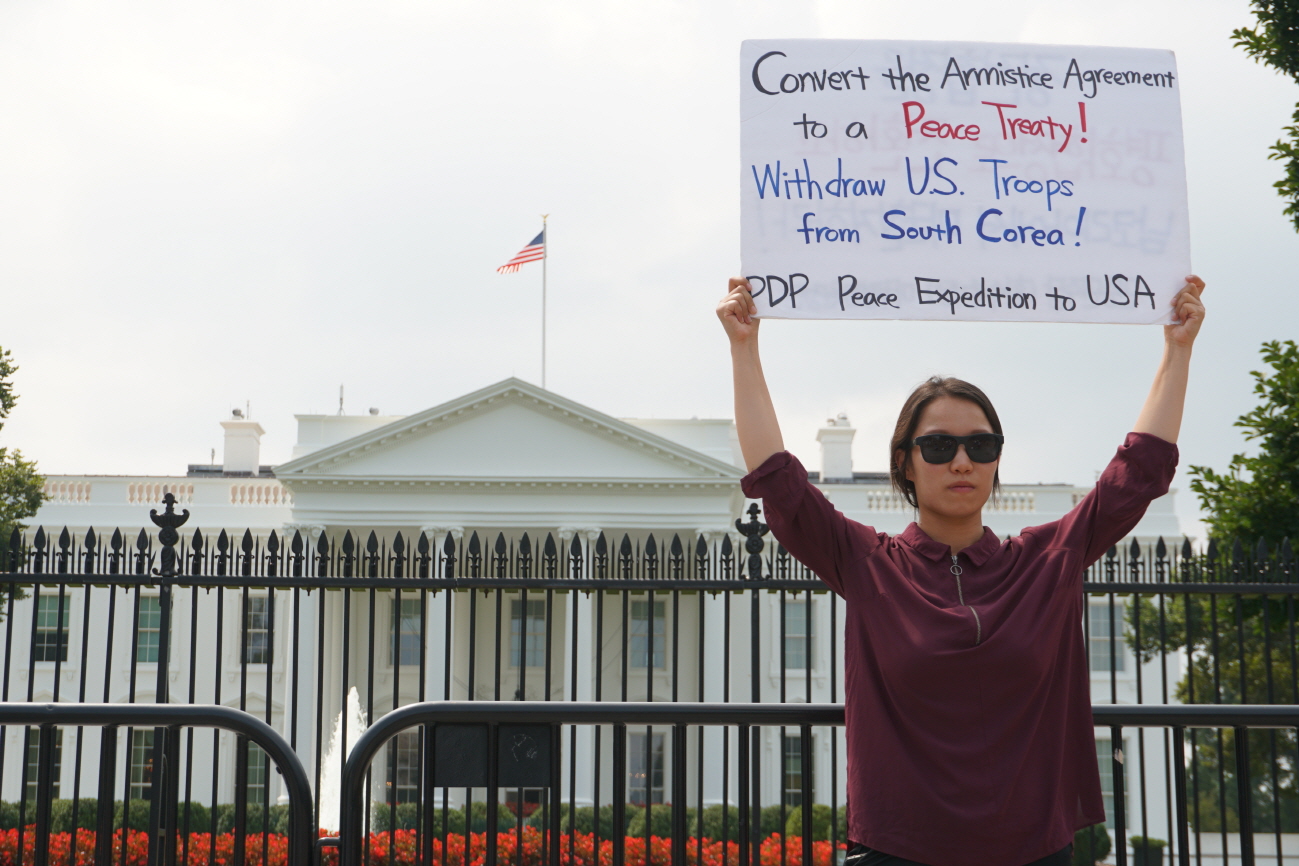 Convert the Armistice Agreement
to a Peace Treaty!
Withdraw U.S. Troops
from South Corea!
PDP Peace Expedition to USA